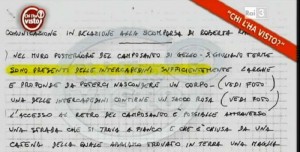 CHI L'HA VISTO?
"CHI L'HA VISTO?"
COMUNICAZIONE IN RELAZIONE ALLA SCOMPARSA DI ROBERTA
NEL MURO POSTERIORE DEL CAMPOSANTO DI GELLO - S. GIULIANO TERME
SONO PRESENTI DELLE INTERCAPEDINI SUFFICIENTEMENTE LARGHE
E PROFONDE DA POTERCI NASCONDERE UN CORPO - (VEDI FOTO)
UNA DELLE INTERCAPEDINI CONTIENE UN SACCO ROSA (VEDI FOTO)
L'ACCESSO AL RETRO DEL CAMPOSANTO È POSSIBILE ATTRAVERSO
UNA STRADA CHE SI TROVA A FIANCO E CHE È CHIUSA DA UNA
CATENA DELLA QUALE ABBIAMO TROVATO IN TERRA UNA MAGLIA